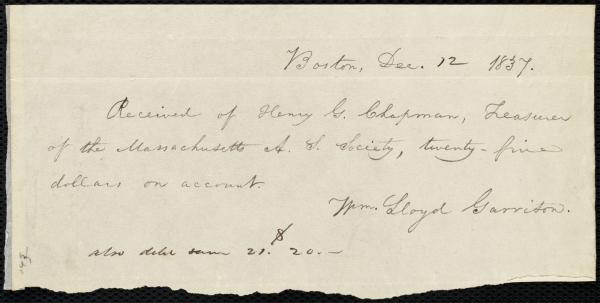 Boston, Dec. 12 1837.
Received of Henry G. Chapman, Treasurer
of the Massachusetts A. S. Society, twenty-five
dollars on account.
Wm. Lloyd Garrison.
also 21. $ 20.—